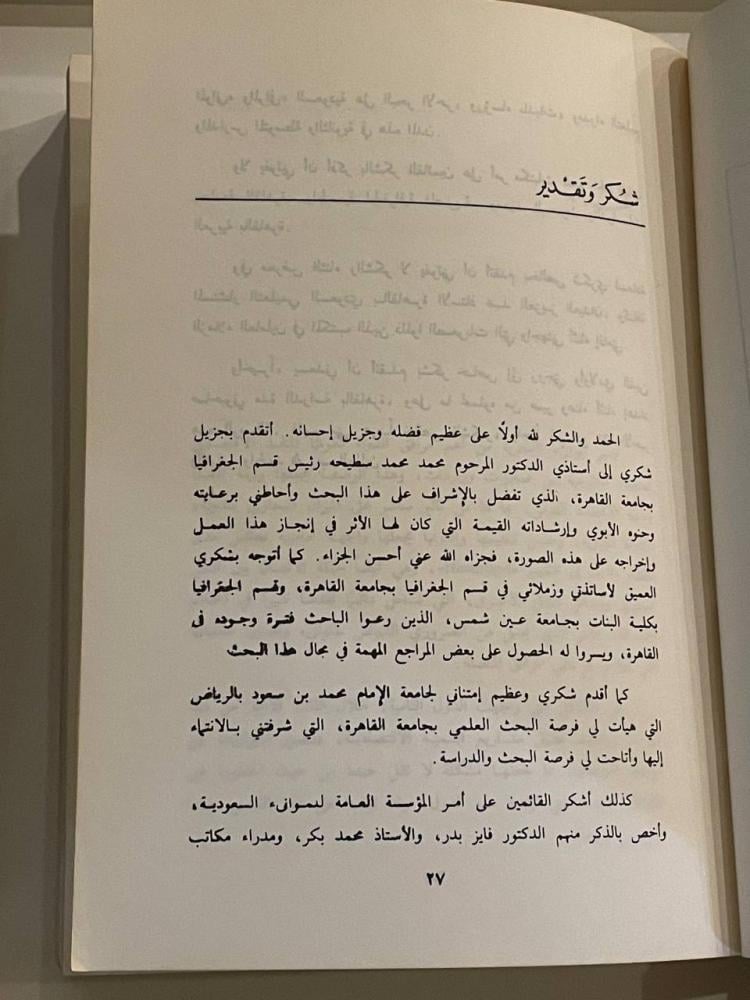 شكر وتقدير
الحمد والشكر لله أولاً على عظيم فضله وجزيل إحسانه. أتقدم بجزيل
شكري إلى أستاذي الدكتور المرحوم محمد محمد سطيحه رئيس قسم الجغرافيا
بجامعة القاهرة، الذي تفضل بالإشراف على هذا البحث وأحاطني برعايته
وحنوه الأبوي وإرشاداته القيمة التي كان لها الأثر في إنجاز هذا العمل
وإخراجه على هذه الصورة، فجزاه الله عني أحسن الجزاء. كما أتوجه بشكري
العميق لأساتذتي وزملائي في قسم الجغرافيا بجامعة القاهرة، وقسم الجغرافيا
بكلية البنات بجامعة عين شمس، الذين رعوا الباحث فترة وجوده في
القاهرة، ويسروا له الحصول على بعض المراجع المهمة في مجال هذا البحث
كما أقدم شكري وعظيم إمتناني لجامعة الإمام محمد بن سعود بالرياض
التي هيأت لي فرصة البحث العلمي بجامعة القاهرة، التي شرفتني بالانتماء
إليها وأتاحت لي فرصة البحث والدراسة.
كذلك أشكر القائمين على أمر المؤسسة العامة للموانىء السعودية،
وأخص بالذكر منهم الدكتور فايز بدر، والأستاذ محمد بكر، ومدراء مكاتب
٢٧